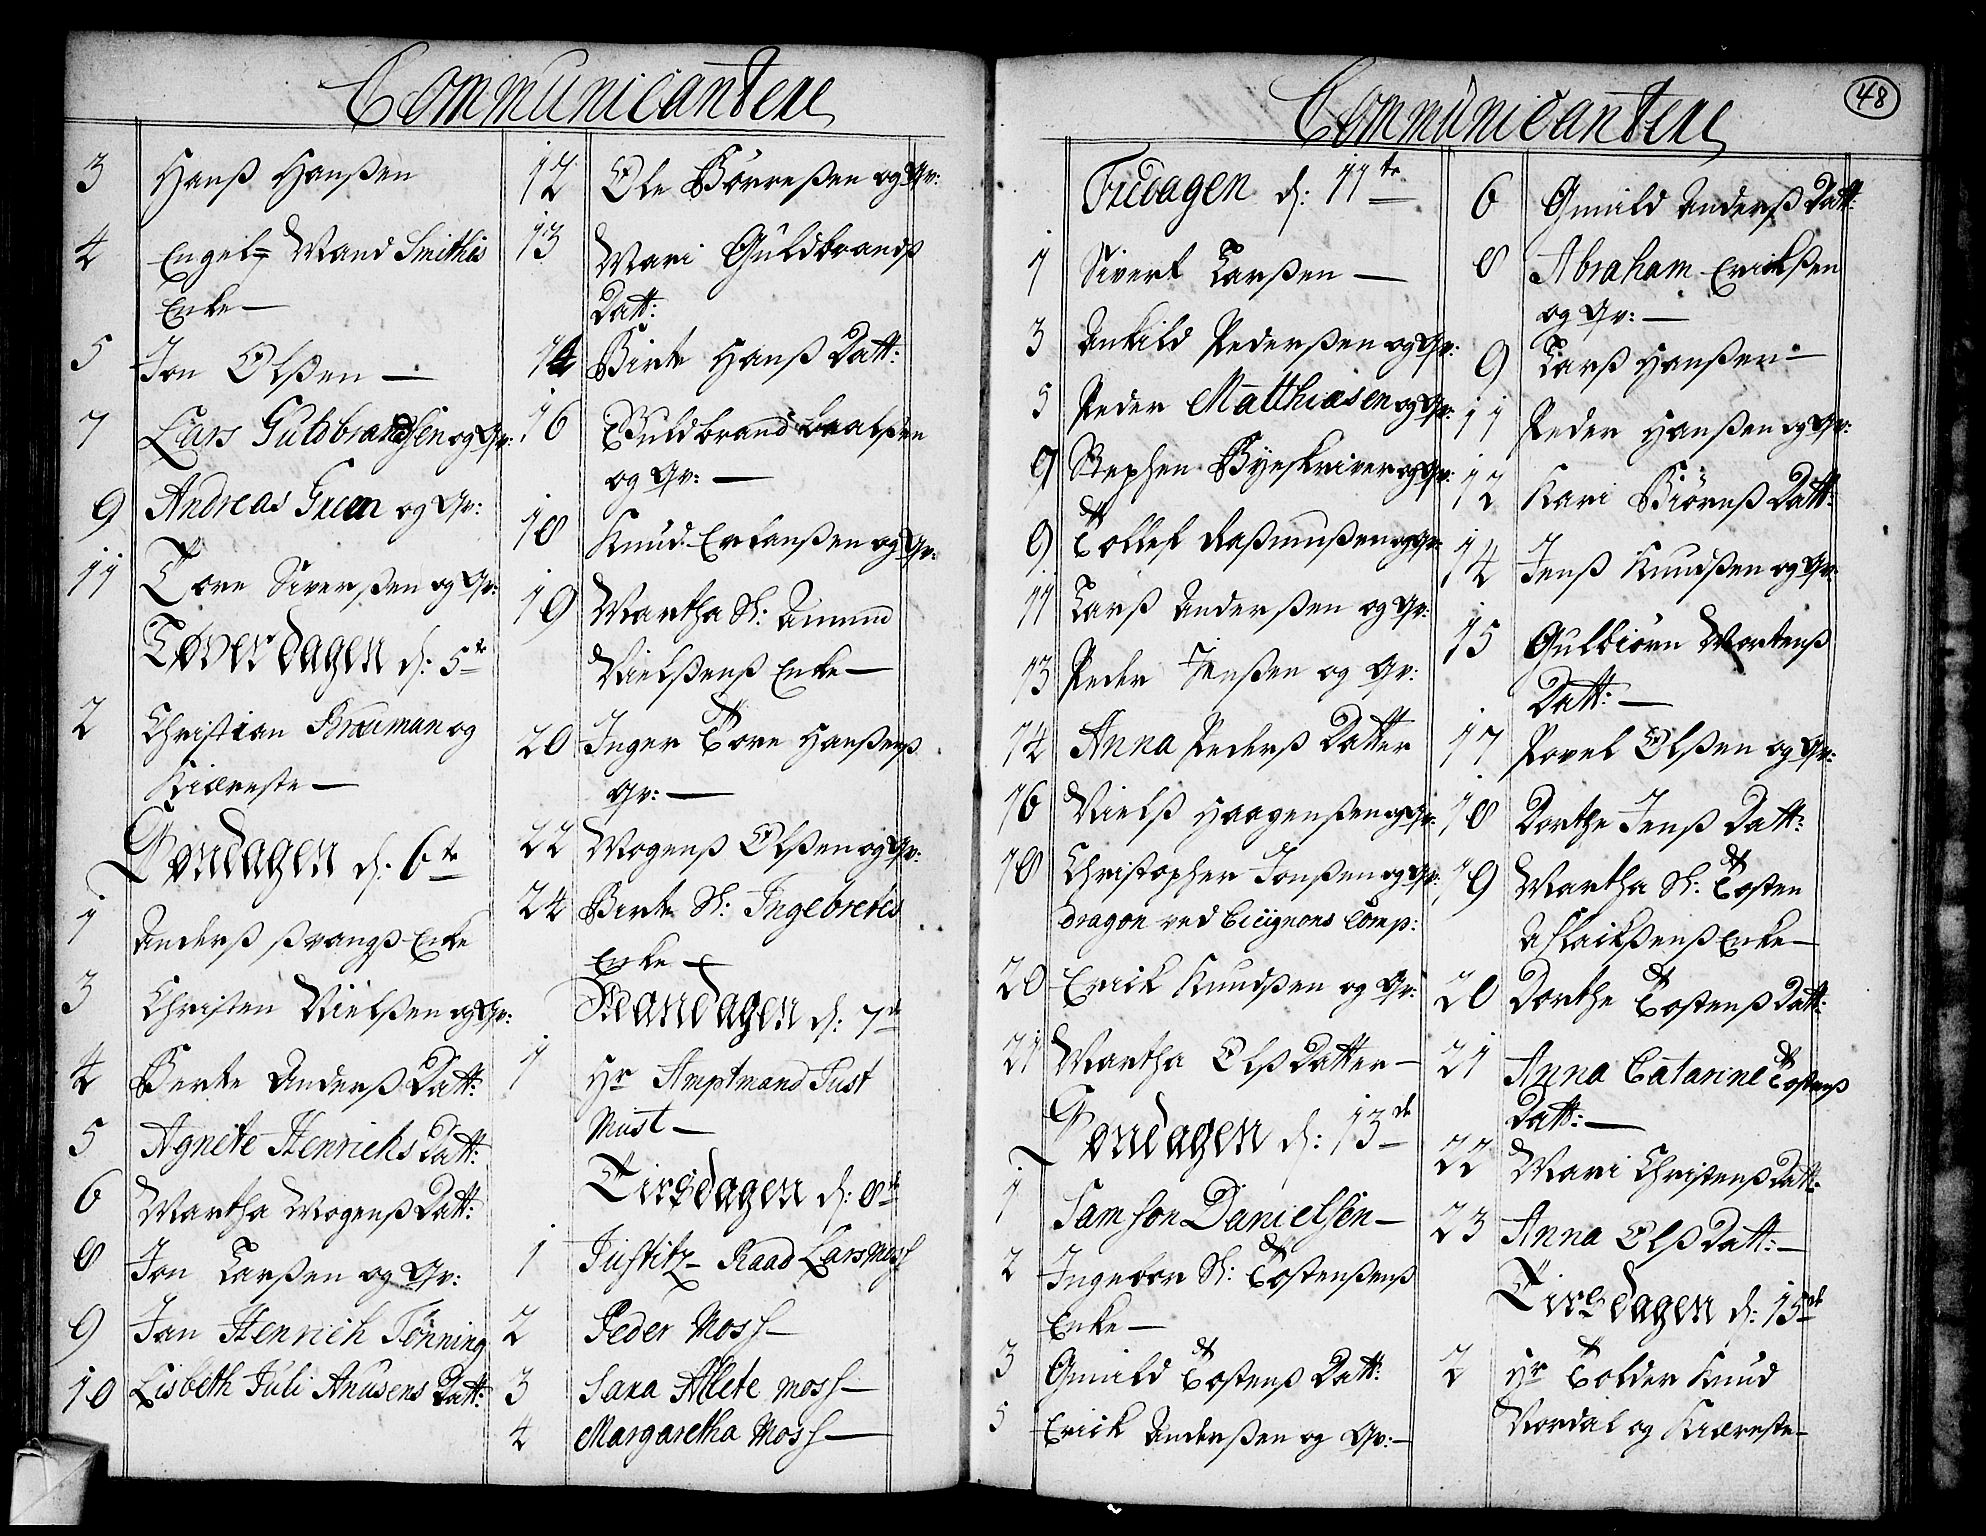 Communicantere
3 Hanß Hanßen
4 Engel= Mand Smithis
Enke —
5 Jon Olßen —
7 Lars Guldbrandsen og Qv:
9 Andreas Green og Qv:
11 Tore Siverßen og Qv:
Løverdagen d: 5te
2 Christian Brauman og
Kiæreste —
Søndagen d: 6te
1 Anderß ßvangs Enke
3 Christen Nielßen og Qv:
4 Berte Anderß Datt:
5 Agnete Henrichs Datt:
6 Martha Mogenß Datt:
8 Jon Larßen og Qv:
9 Jan Henrich Tønning
10 Lisbeth Juli Anusens Datt:
12 Ole Børreßen og Qv:
13 Mari Guldbrands
Datt:
14 Birte Hanß Datt:
16 Guldbrand
og Qv: —
18 Knud Erlanßen og Qv:
19 Martha Sl: Amund
Nielßenß Enke —
20 Inger Tore Hanßens
Qv: —
22 Mogenß Olßen og Qv:
24 Birte Sl: Ingebrets
Enke —
Mandagen d: 7de
1 Hr Amptmand Just
Must —
Tirsdagen d: 8de
1 Justitz Raad Lars Moss
2 Peder Moss —
3 Sara Alete Moss —
4 Margaretha Moss —
Communicantere
48
Fredagen d: 11te
1 Sivert Larßen —
3 Ankild Pederßen og Qv:
5 Peder Matthiasen og Qv:
9 Stephen Byeskriver og Qv:
9 Tollef Raßmußen og Qv:
11 Larß Anderßen og Qv:
13 Peder Jenßen og Qv:
14 Anna Pederß Datter
16 Nielß Haagenßen og Qv:
18 Christopher Jonßen og Qv:
Dragon ved Cicignons Comp:
20 Erick Knudßen og Qv:
21 Martha Olß Datter —
Søndagen d: 13de
1 Samson Danielsen —
2 Ingebor Sl: Tostenßenß
Enke —
3 Gunild Tostenß Datt:
5 Erick Anderßen og Qv: —
6 Gunild Anderß Datt:
8 Abraham Erickßen
og Qv: —
9 Larß Hanßen —
11 Peder Hanßen og Qv:
12 Kari Biørnß Datt:
14 Jenß Knudßen og Qv:
15 Gulbiørn Mortenß
Datt: —
17 Povel Olßen og Qv:
18 Dorthe Jenß Datt:
19 Martha Sl: Tosten
Aslackßenß Enke —
20 Dorthe Tostenß Datt:
21 Anna Catarine Tostens
Datt: —
22 Mari Christenß Datt:
23 Anna Olß Datt: —
Tirsdagen d: 15de
2 Hr Tolder Knud
Nordal og Kiæreste —